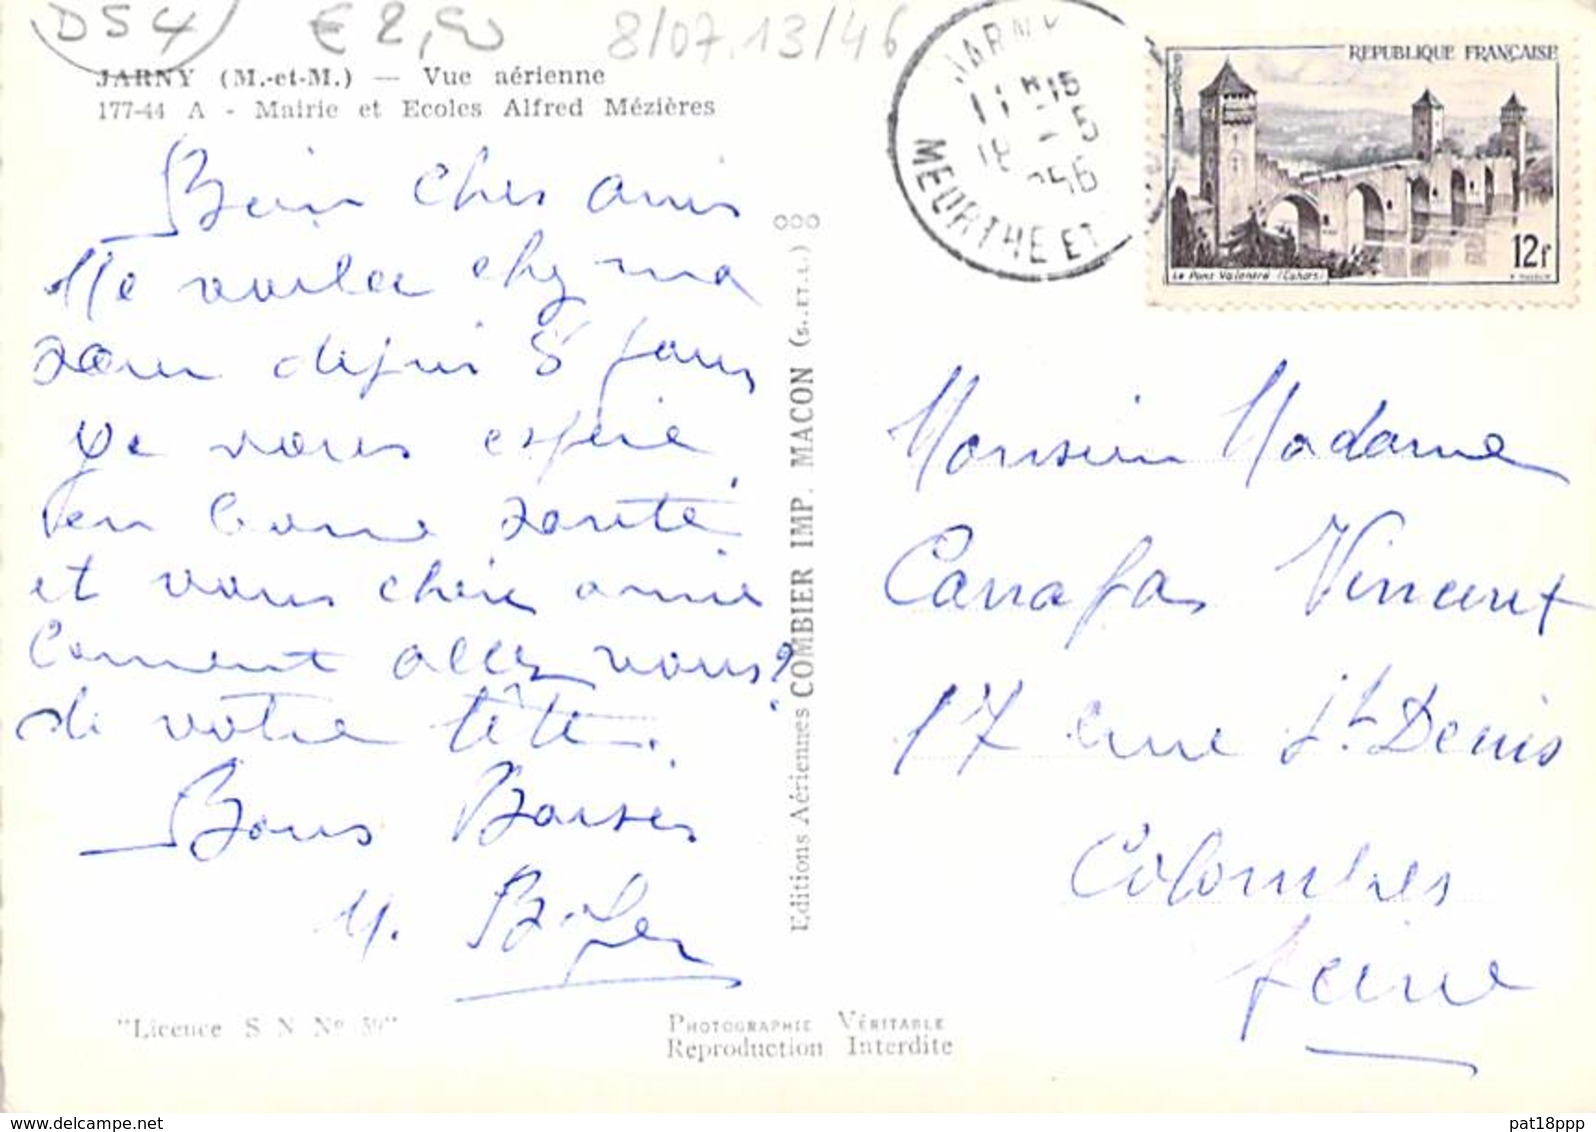 D54 € 2,50 8/07.13/46
JARNY (M.-et-M.) — Vue aérienne
177-44 A - Mairie et Ecoles Alfred Mézières
JARNY
MEURTHE ET
REPUBLIQUE FRANÇAISE
POSTES
12f
Le Pont Valentré (Cahors)
Bein chers amis
Me voilea chez ma
sœur depuis 8 jours
Je vous espère
en bonne santé
et vous chère amie
Comment allez vous?
de votre tête.
Bons Baisers
M.
Editions Aériennes COMBIER IMP. MACON (S.-ET-L.)
Monsieur Madame
Carrafa Vincent
17 rue St. Denis
Colombes
Seine
"Licence S N N° 39"
PHOTOGRAPHIE VÉRITABLE
Reproduction Interdite
delcampe.net
pat18ppp